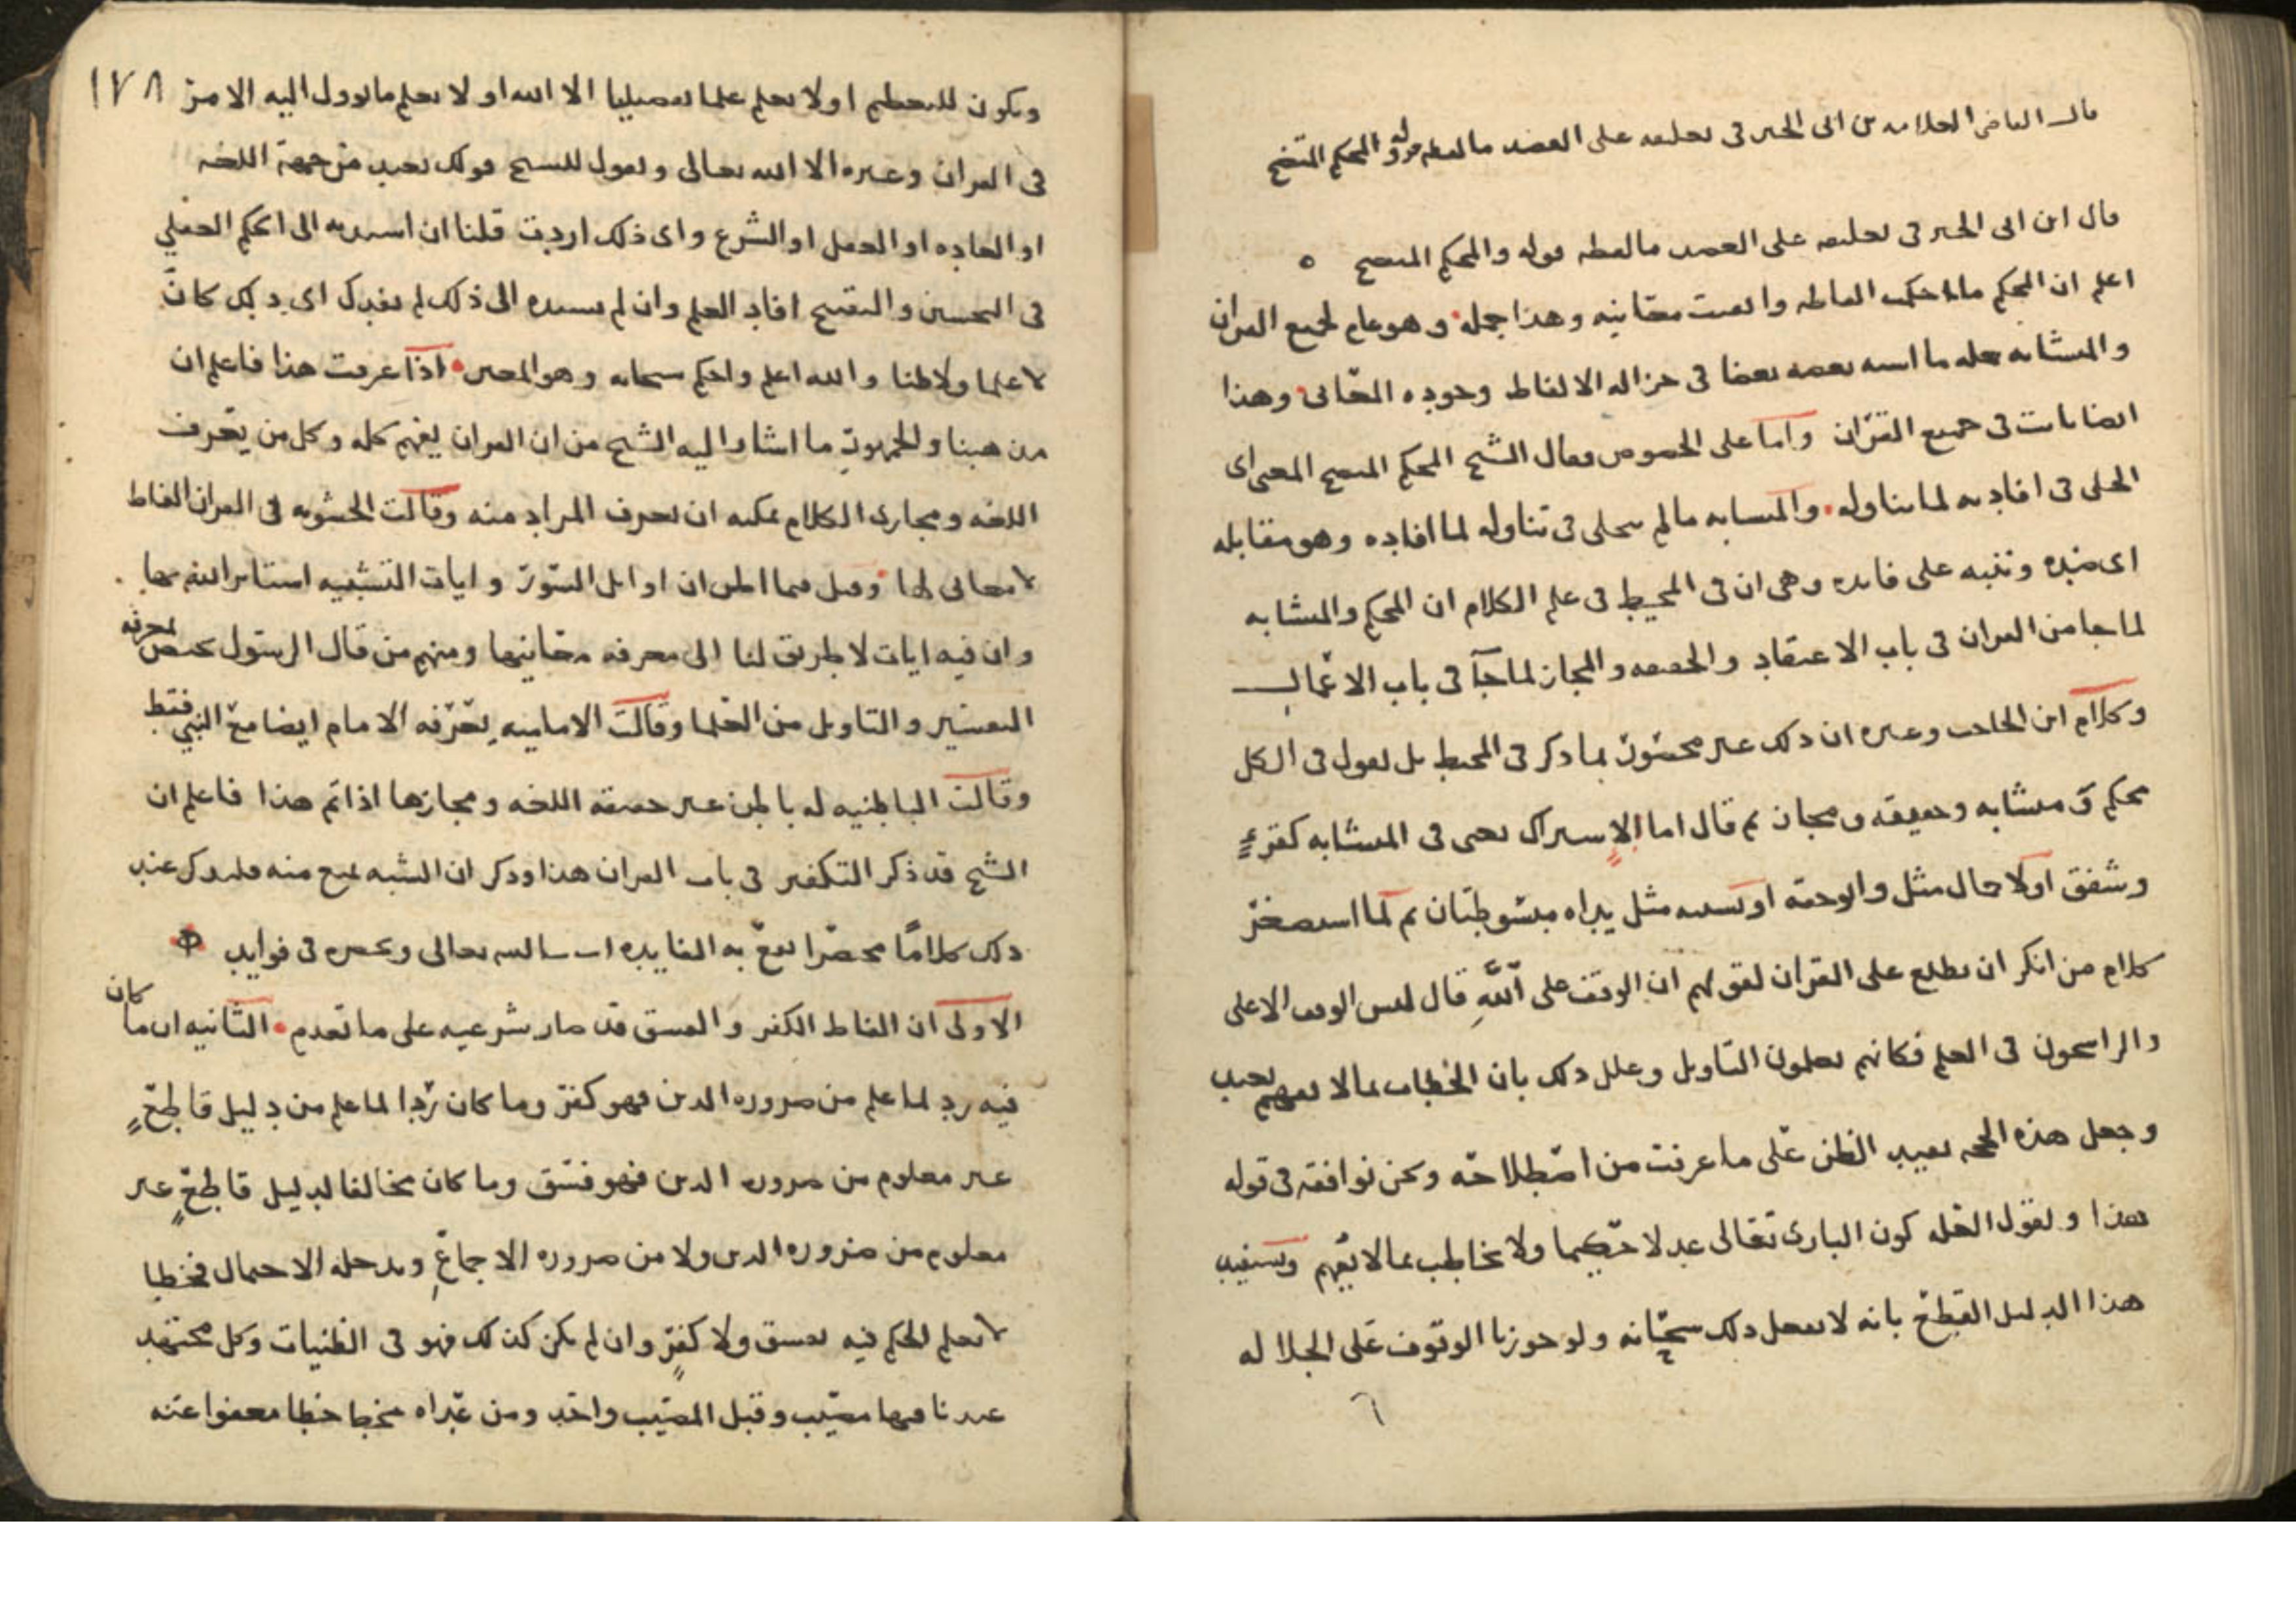 قال القاضي العلامة بن ابى الخير في تعليقه على العضد ما لفظه قوله والمحكم المتضح
قال ابن ابى الخير في تعليقه على العضد ما لفظه قوله والمحكم المتضح ه
اعلم ان المحكم ما احكمت الفاظه واتقنت معانيه وهذا جمله وهو عام لجميع القران
والمتشابه جمله ما اشبه بعضه بعضا في جزاله الالفاظ وجوده المعاني وهذا
ايضا ثابت في جميع القران واما على الخصوص فقال الشيخ المحكم المتضح المعنى اى
الجلى في افادته لما يتناوله والمتشابه مالم يتجلى في تناوله لما افاده وهو مقابله
اى ضده وننبه على فائده وهي ان في المحيط في علم الكلام ان المحكم والمتشابه
لما جا من القران في باب الاعتقاد والحقيقه والمجاز لما جآ في باب الاعمال
وكلام ابن الحاجب وغيره ان ذلك غير مخصوص بما ذكر في المحيط بل نقول في الكل
محكم ومتشابه وحقيقه ومجاز ثم قال اما الاشتراك يعني في المتشابه كقرء
وشفق اولاجمال مثل وآتوا حقه او تشبيه مثل يداه مبسوطتان ثم لما استصغر
كلام من انكر ان يطلع على القران لقولهم ان الوقف على الله قال ليس الوقف الا على
والراسخون في العلم فكانهم يعلمون التاويل وعلل ذلك بان الخطاب بما لا يفهم بعيد
وجعل هذه الحجه تفيد الظن على ما عرفت من اصطلاحه ونحن نوافقه في قوله
هذا ونقول العله كون البارى تعالى عدلا حكيما ولا يخاطب بما لا يفهم ونستفيد
هذا الدليل القطع بانه لا يفعل ذلك سبحانه ولو جوزنا الوقوف على الجلاله
٦
١٧٨
ويكون للتعظيم او لا يعلم علما تفصيليا الا الله او لا يعلم ما يوول اليه الامر
في القران وغيره الا الله تعالى ونقول للشيخ قولك بعيد من جهة اللغه
او العاده او العقل او الشرع واى ذلك اردت قلنا ان اسندته الى الحكم العقلي
في التحسين والتقبيح افاد العلم وان لم تسنده الى ذلك لم يفدك اى ذلك كان
لا علما ولا ظنا والله اعلم واحكم سبحانه وهو المعين اذا عرفت هذا فاعلم ان
مذهبنا والجمهور ما اشار اليه الشيخ من ان القران يفهم كله وكل من يعرف
اللغه ومجارى الكلام يمكنه ان يعرف المراد منه وقالت الحشويه في القران الفاظ
لا معاني لها وقيل فيما اظن ان اوايل السور وايات التشبيه استاثر الله بها
وان فيه ايات لا طريق لنا الى معرفه معانيها ومنهم من قال الرسول يختص بمعرفه
التفسير والتاويل من العلما وقالت الاماميه يعرفه الامام ايضا مع النبي فقط
وقالت الباطنيه له باطن غير حقيقه اللغه ومجازها اذا تم هذا فاعلم ان
الشيخ قد ذكر التكفير في باب القران هذا وذكر ان الشبه تمنع منه فلنذكر عند
ذلك كلاما مختصرا تقع به الفايده ان شا الله تعالى ونحصره في فوايد
الاولى ان الفاظ الكفر والفسق قد صار شرعيه على ما تقدم الثانيه ان ما كان
فيه رد لما علم من ضروره الدين فهو كفر وما كان ردا لما علم من دليل قاطع
غير معلوم من ضروره الدين فهو فسق وما كان مخالفا لدليل قاطع غير
معلوم من ضروره الدين ولا من ضروره الاجماع ويدخله الاحتمال فخطا
لا يعلم الحكم فيه بفسق ولا كفر وان لم يكن كذلك فهو في الظنيات وكل مجتهد
عندنا فيها مصيب وقيل المصيب واحد ومن عداه مخط خطا معفوا عنه